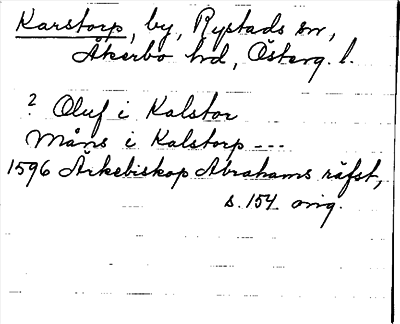 Karstorp, by, Rystads sn,
Åkerbo hd, Österg. l.
? Oluf i Kalstor
Måns i Kalstorp ---
1596 Ärkebiskop Abrahams räfst,
s. 154 orig.